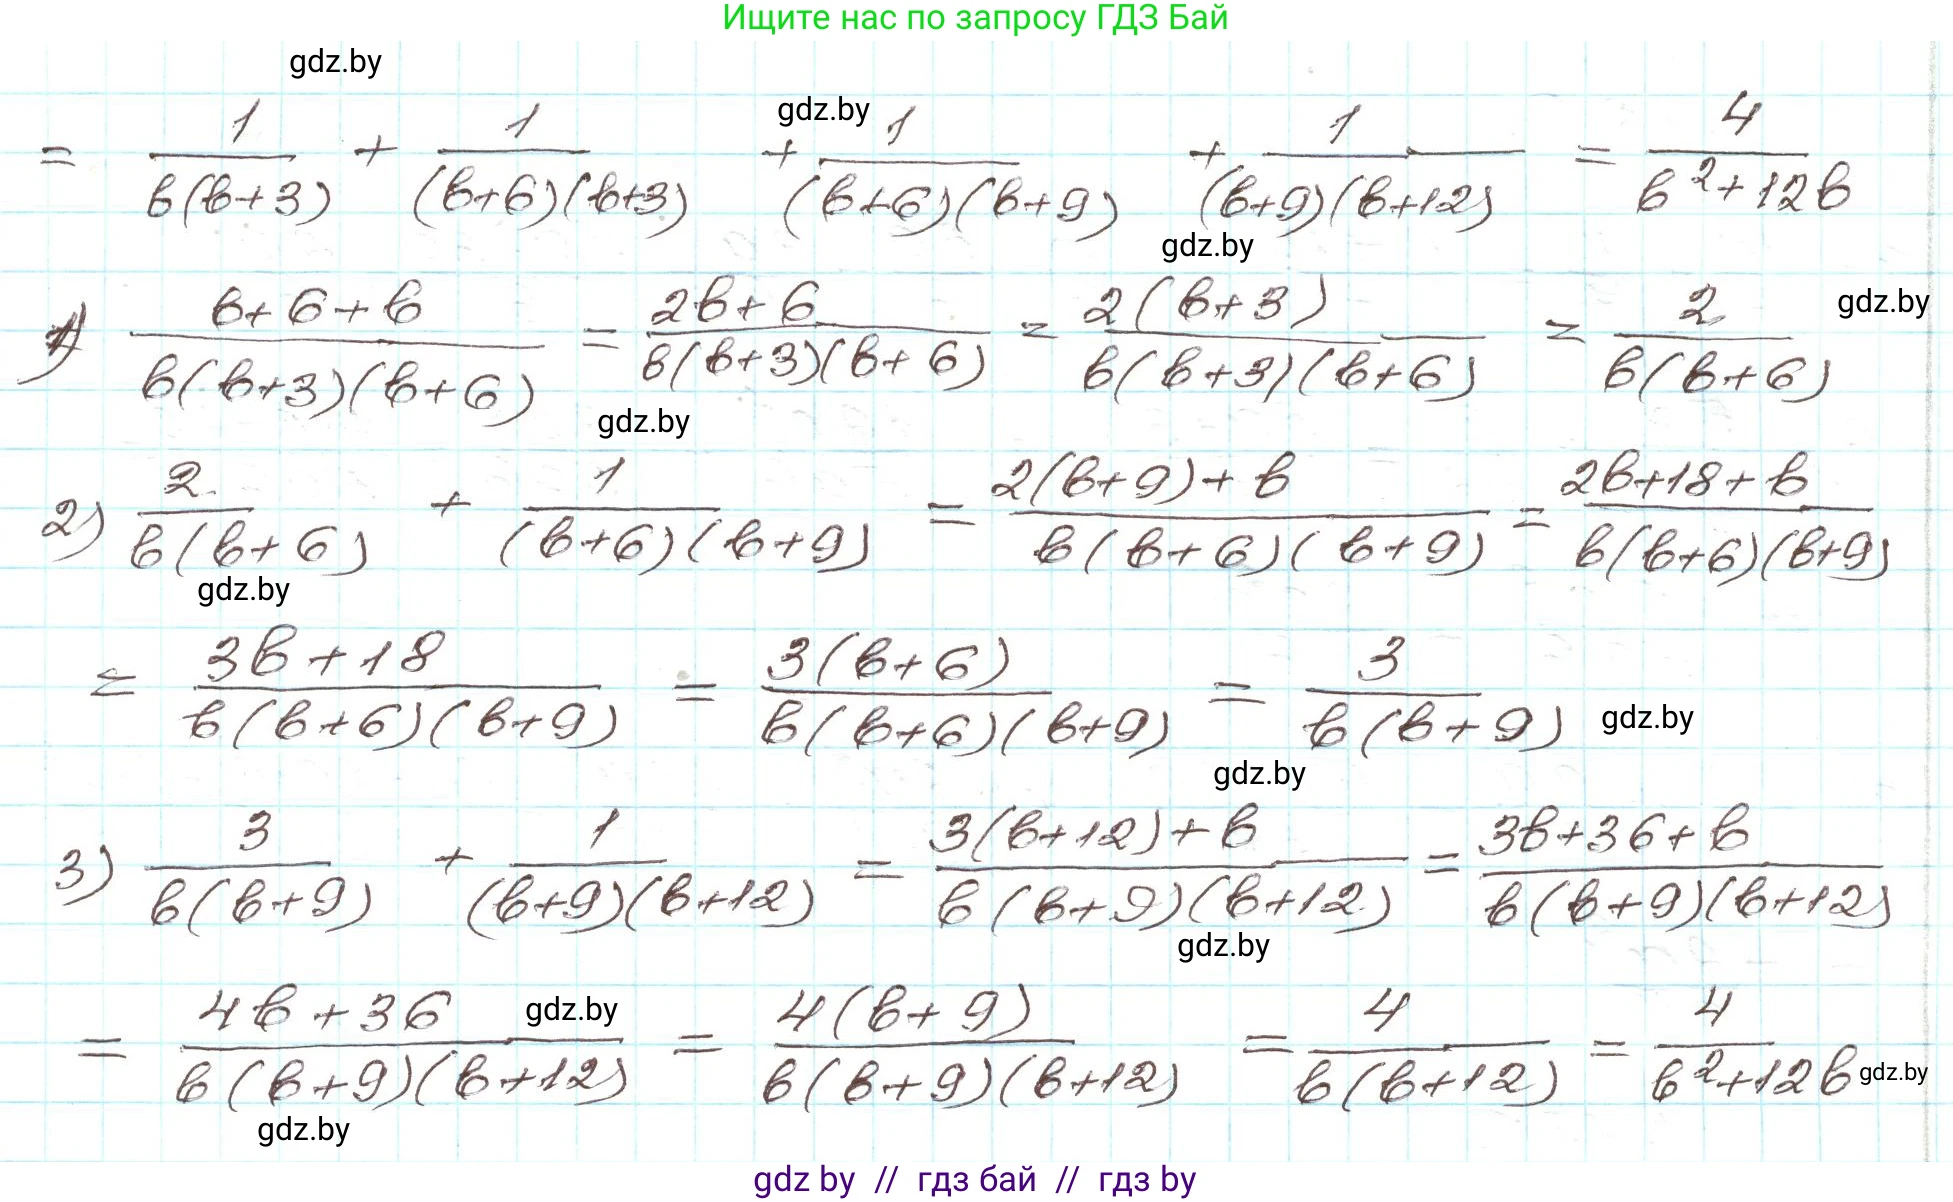 Ищите нас по запросу ГДЗ Бай
gdz.by
gdz.by
= 1/(b(b+3)) + 1/((b+6)(b+3)) + 1/((b+6)(b+9)) + 1/((b+9)(b+12)) = 4/(b²+12b)
gdz.by
1) (b+6+b)/(b(b+3)(b+6)) = (2b+6)/(b(b+3)(b+6)) = 2(b+3)/(b(b+3)(b+6)) = 2/(b(b+6))
gdz.by
gdz.by
2) 2/(b(b+6)) + 1/((b+6)(b+9)) = (2(b+9)+b)/(b(b+6)(b+9)) = (2b+18+b)/(b(b+6)(b+9))
gdz.by
= (3b+18)/(b(b+6)(b+9)) = 3(b+6)/(b(b+6)(b+9)) = 3/(b(b+9))
gdz.by
gdz.by
3) 3/(b(b+9)) + 1/((b+9)(b+12)) = (3(b+12)+b)/(b(b+9)(b+12)) = (3b+36+b)/(b(b+9)(b+12))
gdz.by
gdz.by
= (4b+36)/(b(b+9)(b+12)) = 4(b+9)/(b(b+9)(b+12)) = 4/(b(b+12)) = 4/(b²+12b)
gdz.by
gdz.by
gdz by // гдз бай // гдз by